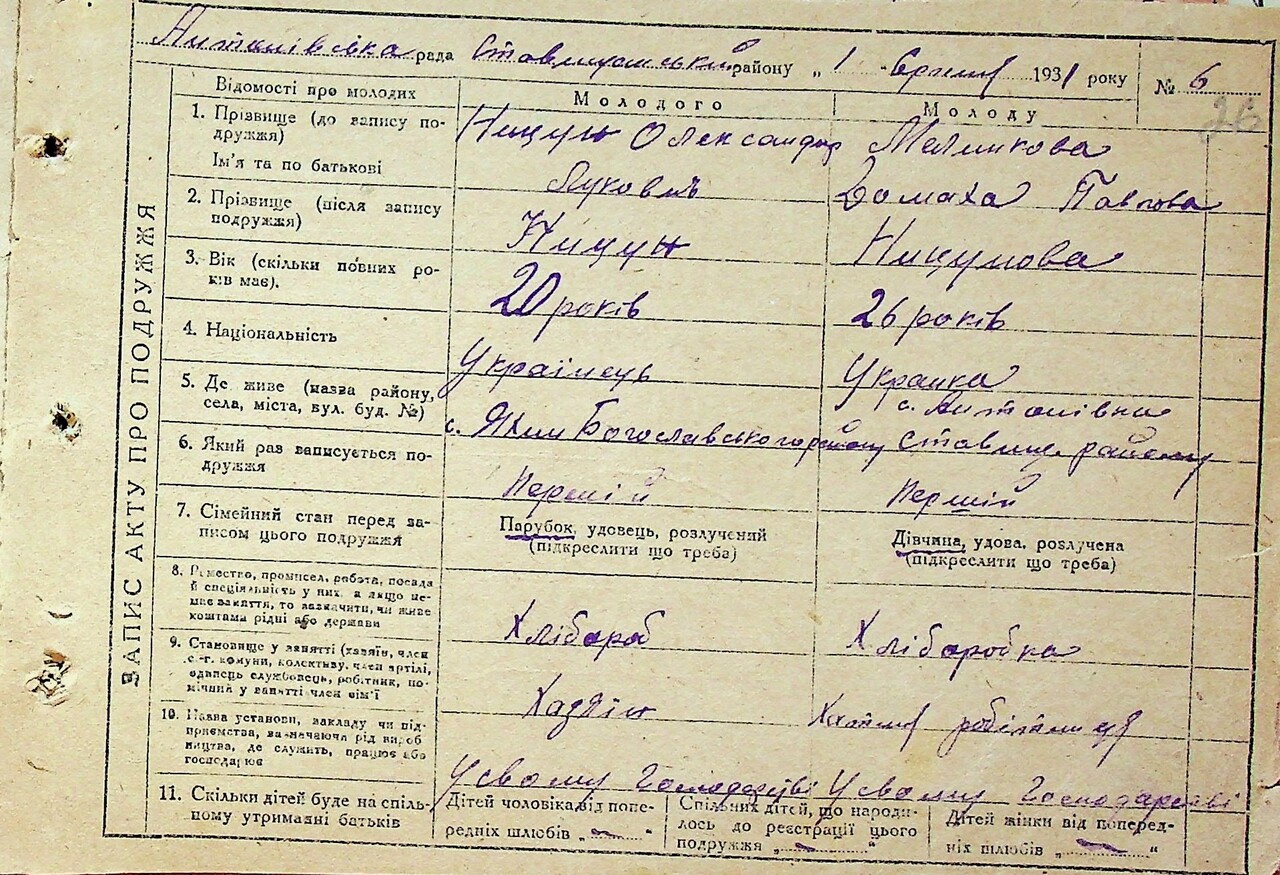 Антонівська рада Ставищанський району „ 1 " серпня 1931 року № 6
26
ЗАПИС АКТУ ПРО ПОДРУЖЖЯ
Відомості про молодих
Молодого
Молоду
1. Прізвище (до запису по-
дружжя)
Ім'я та по батькові
Ницун Олександр
Яковлів
Мельникова
Домаха Павлова
2. Прізвище (після запису
подружжя)
Ницун
Ницунова
3. Вік (скільки повних ро-
ків має).
20 років
26 років
4. Національність
Українець
Украінка
5. Де живе (назва району,
села, міста, вул. буд. №)
с. Яхни Богославського району
с. Антонівка
Ставищ. району
6. Який раз записується по-
дружжя
Перший
Перший
7. Сімейний стан перед за-
писом цього подружжя
Парубок, удовець, розлучений
(підкреслити що треба)
Дівчина, удова, розлучена
(підкреслити що треба)
8. Ремество, промисел, робота, посада
й спеціяльність у них, а якщо не-
має заняття, то зазначити, чи живе
коштами рідні або держави
Хлібороб
Хліборобка
9. Становище у занятті (хазяїн, член
с.-г. комуни, колективу, член артілі,
одинець службовець, робітник, по-
мічний у занятті член сім'ї
Хазяін
10. Назва установи, закладу чи під-
приємства, зазначаючи рід вироб
ництва, де служить, працює або
господарює
У свому господарстві
У свому господарстві
11. Скільки дітей буде на спіль-
ному утриманні батьків
Дітей чоловіка від попе-
редніх шлюбів „ — "
Спільних дітей, що народи-
лось до реєстрації цього
подружжя „ — "
Дітей жінки від поперед-
ніх шлюбів „ — "